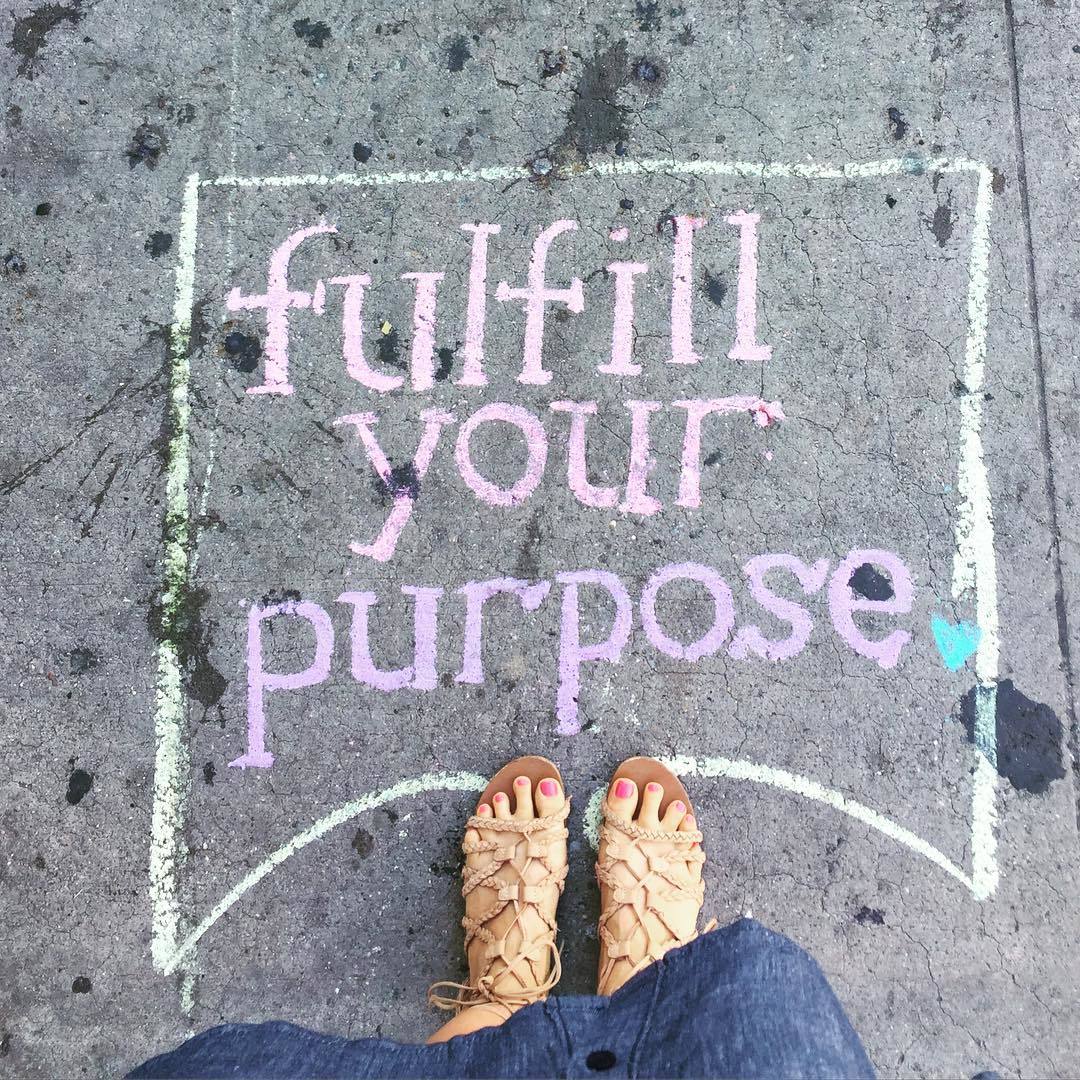 fulfill
your
purpose